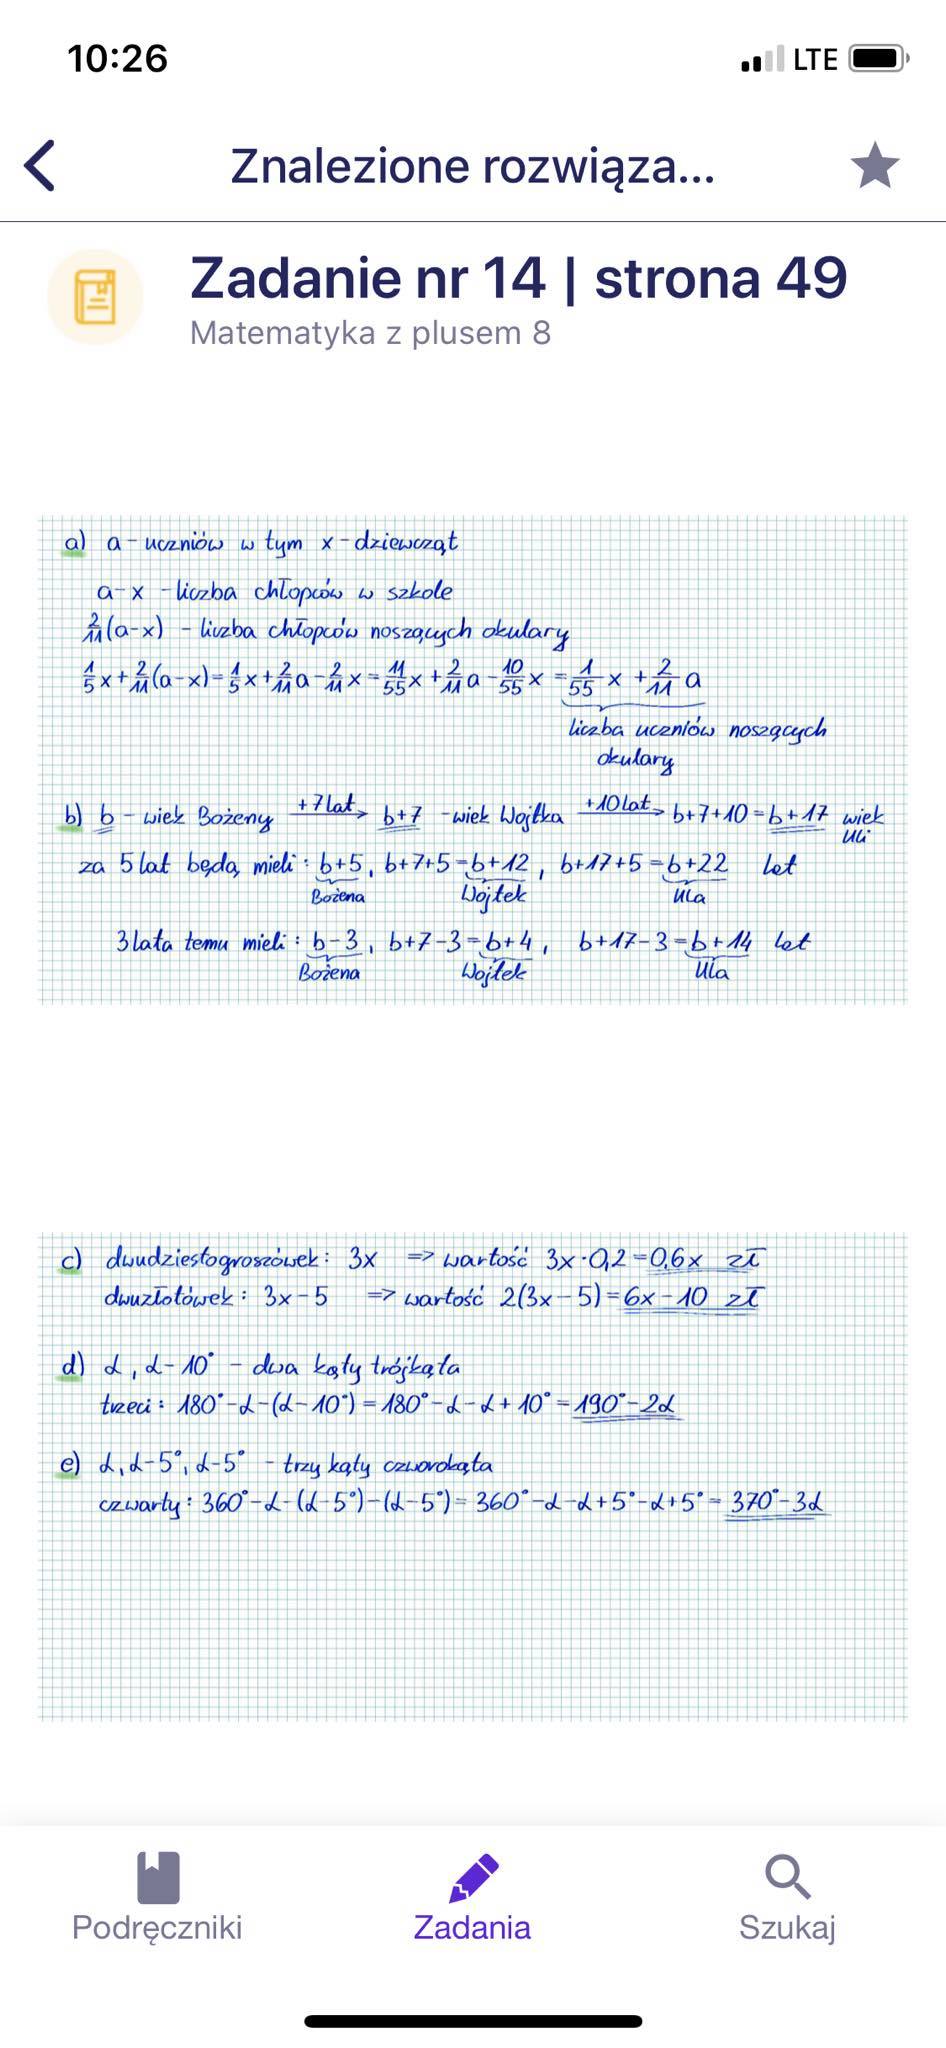 10:26
LTE
Znalezione rozwiąza...
Zadanie nr 14 | strona 49
Matematyka z plusem 8
a) a - uczniów w tym x - dziewcząt
a-x - liczba chłopców w szkole
2/11(a-x) - liczba chłopców noszących okulary
1/5x + 2/11(a-x) = 1/5x + 2/11a - 2/11x = 11/55x + 2/11a - 10/55x = 1/55x + 2/11a
liczba uczniów noszących
okulary
b) b - wiek Bożeny +7lat→ b+7 - wiek Wojtka +10lat→ b+7+10=b+17 wiek
Uli
za 5 lat będą mieli: b+5, b+7+5=b+12, b+17+5=b+22 lat
Bożena Wojtek Ula
3 lata temu mieli: b-3, b+7-3=b+4, b+17-3=b+14 lat
Bożena Wojtek Ula
c) dwudziestogroszówek: 3x => wartość 3x·0,2=0,6x zł
dwuzłotówek: 3x-5 => wartość 2(3x-5)=6x-10 zł
d) α, α-10° - dwa kąty trójkąta
trzeci: 180°-α-(α-10°)=180°-α-α+10°=190°-2α
e) α, α-5°, α-5° - trzy kąty czworokąta
czwarty: 360°-α-(α-5°)-(α-5°)=360°-α-α+5°-α+5°=370°-3α
Podręczniki
Zadania
Szukaj